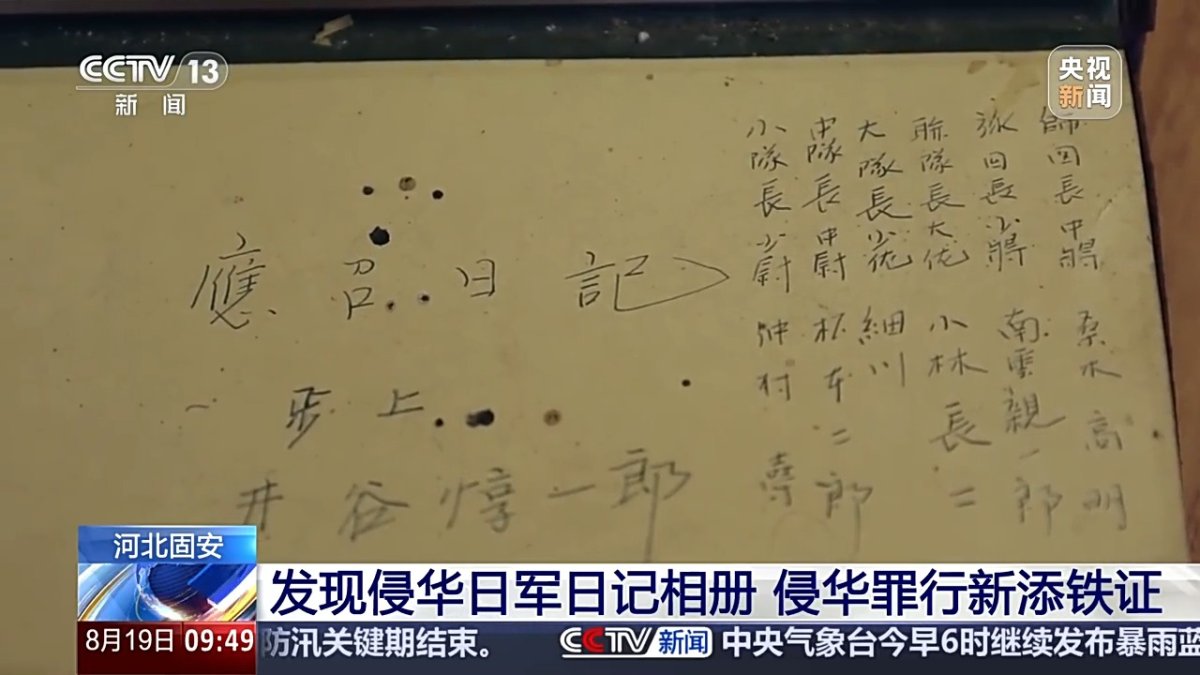 CCTV 13
新闻
央视
新闻
師団長 中將 桑木高明
旅団長 少將 南雲親一郎
聯隊長 大佐 小林長二
大隊長 少佐 細川
中隊長 中尉 杉本二郎
小隊長 少尉 仲村
應召日記
一步上
井谷惇一郎
河北固安
发现侵华日军日记相册 侵华罪行新添铁证
8月19日 09:49
防汛关键期结束。 CCTV新闻 中央气象台今早6时继续发布暴雨蓝